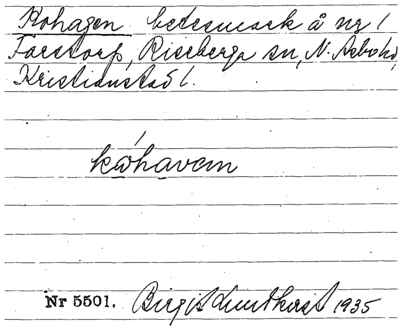 Kohagen betesmark å nr 1
Farstorp, Riseberga sn, N. Asbo hd,
Kristianstad l.
kóhavem
Nr 5501. Birgit Lundkvist 1935